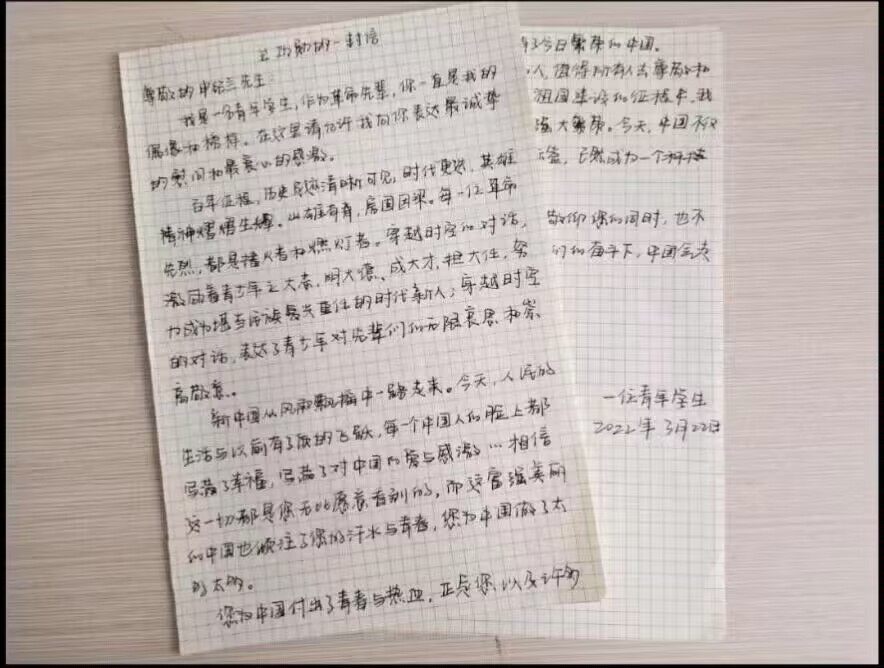 功勋的一封信
尊敬的申纪兰先生:
我是一名青年学生,作为革命先辈,你一直是我的
偶像和榜样。在这里请允许我向你表达最诚挚
的慰问和最衷心的感激。
百年征程,历史足迹清晰可见,时代更迭,英雄
精神熠熠生辉。山雄有脊,房固因梁。每一位革命
先烈,都是播火者和燃灯者。穿越时空的对话,
激励着青少年立大志,明大德,成大才,担大任,努
力成为堪当民族复兴重任的时代新人;穿越时空
的对话,表达了青少年对先辈们的无限哀思和崇
高敬意。
新中国从风雨飘摇中一路走来。今天,人民的
生活与以前有了质的飞跃,每一个中国人的脸上都
写满了幸福,写满了对中国的爱与感激…相信
这一切都是您无比愿意看到的,而这富强美丽
的中国也倾注了您的汗水与青春,您为中国做了太
多太多。
您为中国付出了青春与热血,正是您,以及许多
有了今日繁荣的中国。
人,值得所有人去尊敬和
祖国建设的征程中,我
强大繁荣。今天,中国不仅
已然成为一个
敬仰您的同时,也不
们的奋斗下,中国会走
一位青年学生
2022年3月22日